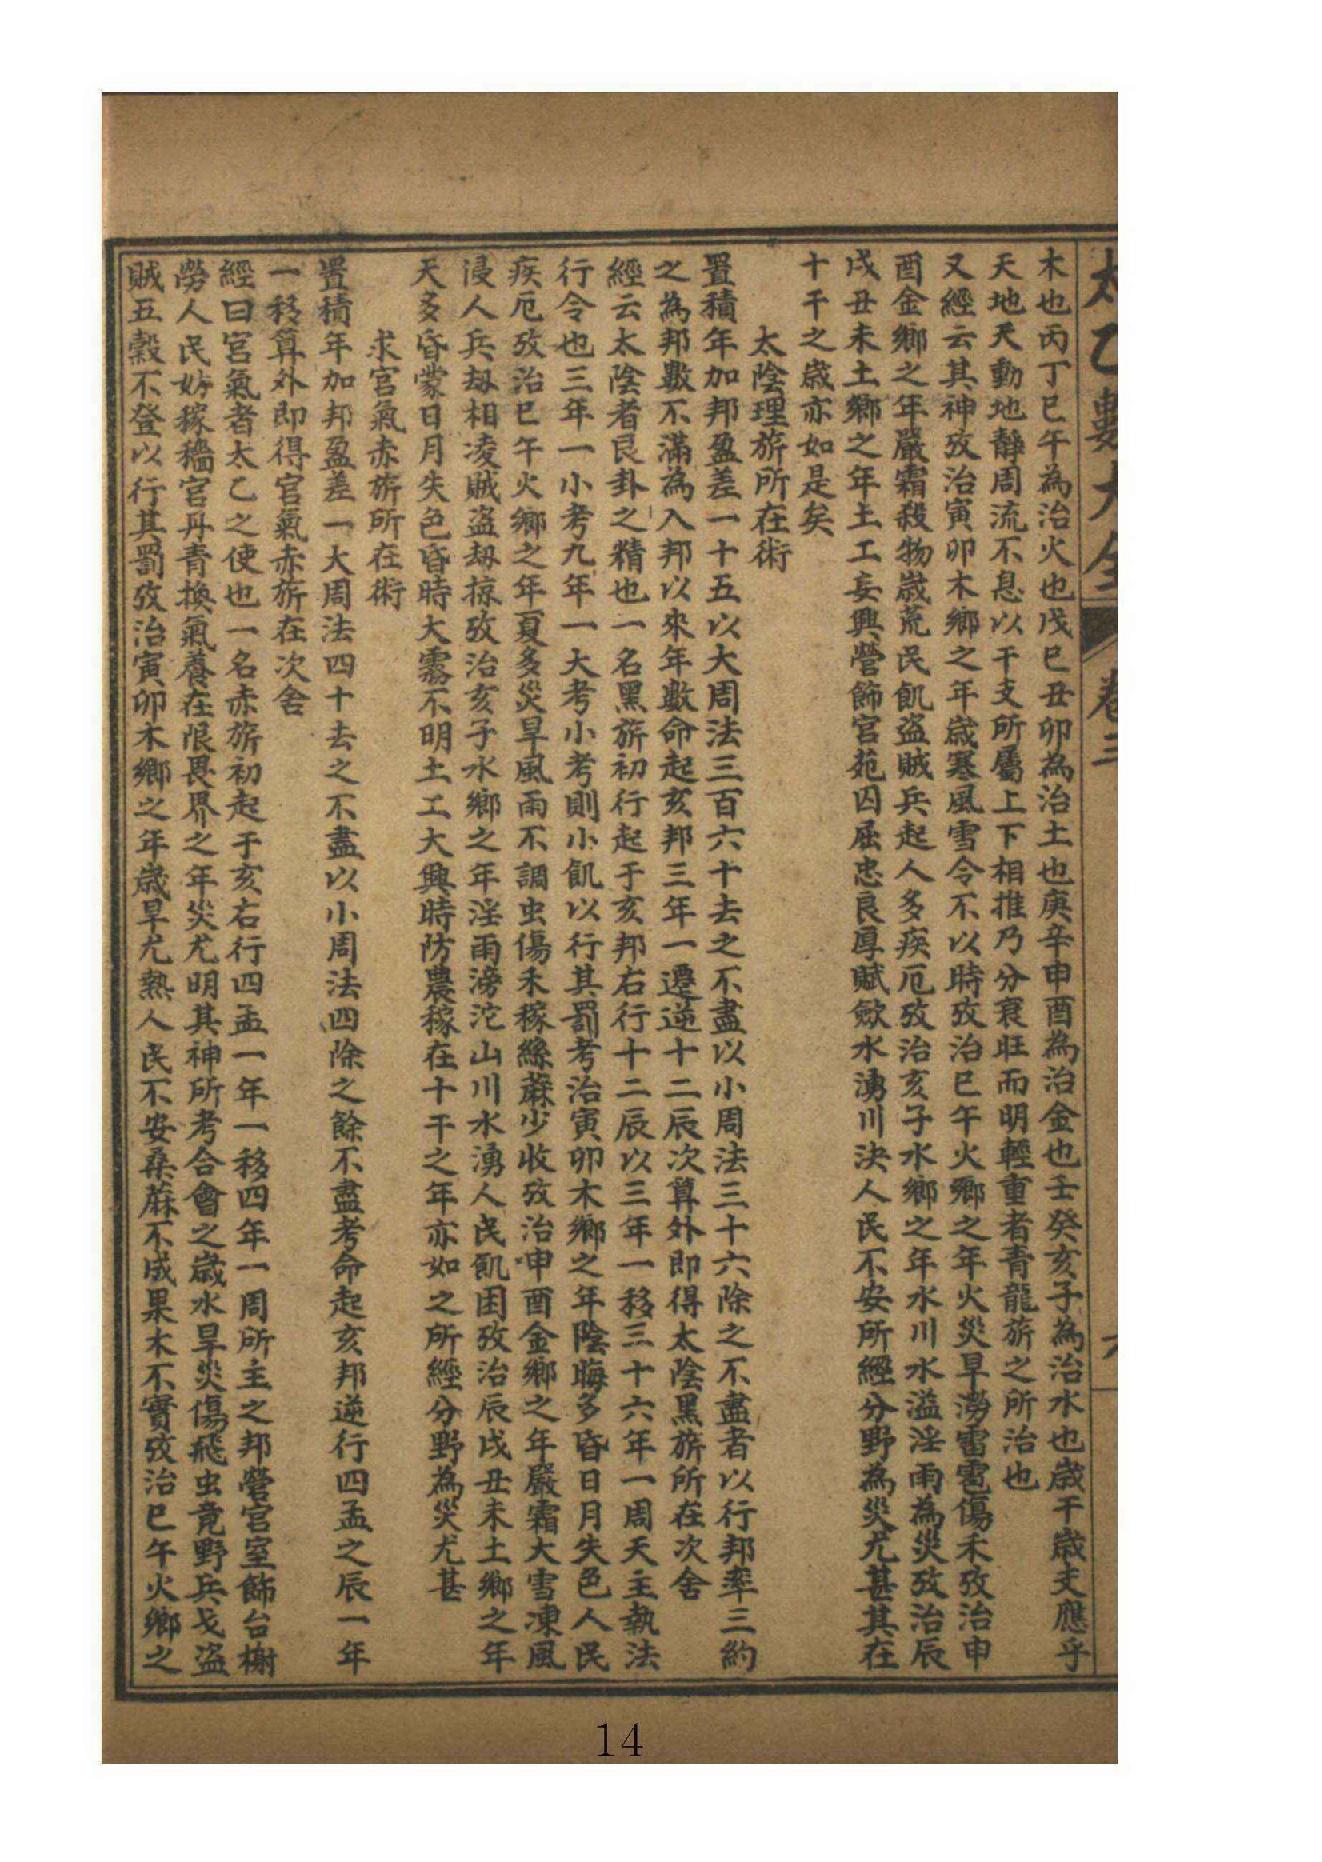 太乙數大全 卷三
木也丙丁巳午為治火也戊巳丑卯為治土也庚辛申酉為治金也壬癸亥子為治水也歲干歲支應乎
天地天動地靜周流不息以干支所屬上下相推乃分衰旺而明輕重者青龍旂之所治也
又經云其神攷治寅卯木鄉之年歲寒風雪令不以時攷治巳午火鄉之年火災旱澇雷雹傷禾攷治申
酉金鄉之年嚴霜殺物歲荒民飢盜賊兵起人多疾厄攷治亥子水鄉之年水川水溢淫雨為災攷治辰
戌丑未土鄉之年土工妄興營飾宮苑囚屈忠良厚賦斂水湧川決人民不安所經分野為災尤甚其在
十干之歲亦如是矣
太陰理旂所在術
置積年加邦盈差一十五以大周法三百六十去之不盡以小周法三十六除之不盡者以行邦率三約
之為邦數不滿為入邦以來年數命起亥邦三年一遷逆十二辰次算外即得太陰黑旂所在次舍
經云太陰者艮卦之精也一名黑旂初行起于亥邦右行十二辰以三年一移三十六年一周天主執法
行令也三年一小考九年一大考小考則小飢以行其罰考治寅卯木鄉之年陰晦多昏日月失色人民
疾厄攷治巳午火鄉之年夏多災旱風雨不調虫傷禾稼絲蔴少收攷治申酉金鄉之年嚴霜大雪凍風
浸人兵刼相凌賊盜刼掠攷治亥子水鄉之年淫雨滂沱山川水湧人民飢困攷治辰戌丑未土鄉之年
天多昏濛日月失色昏時大霧不明土工大興時防農稼在十干之年亦如之所經分野為災尤甚
求宮氣赤旂所在術
置積年加邦盈差一大周法四十去之不盡以小周法四除之餘不盡考命起亥邦逆行四孟之辰一年
一移算外即得宮氣赤旂在次舍
經曰宮氣者太乙之使也一名赤旂初起于亥右行四孟一年一移四年一周所主之邦營宮室飾台榭
勞人民妨稼穡宮丹青換氣養在限畏界之年災尤明其神所考合會之歲水旱災傷飛虫竟野兵戈盜
賊五穀不登以行其罰攷治寅卯木鄉之年歲旱尤熱人民不安桑蔴不成果木不實攷治巳午火鄉之
14